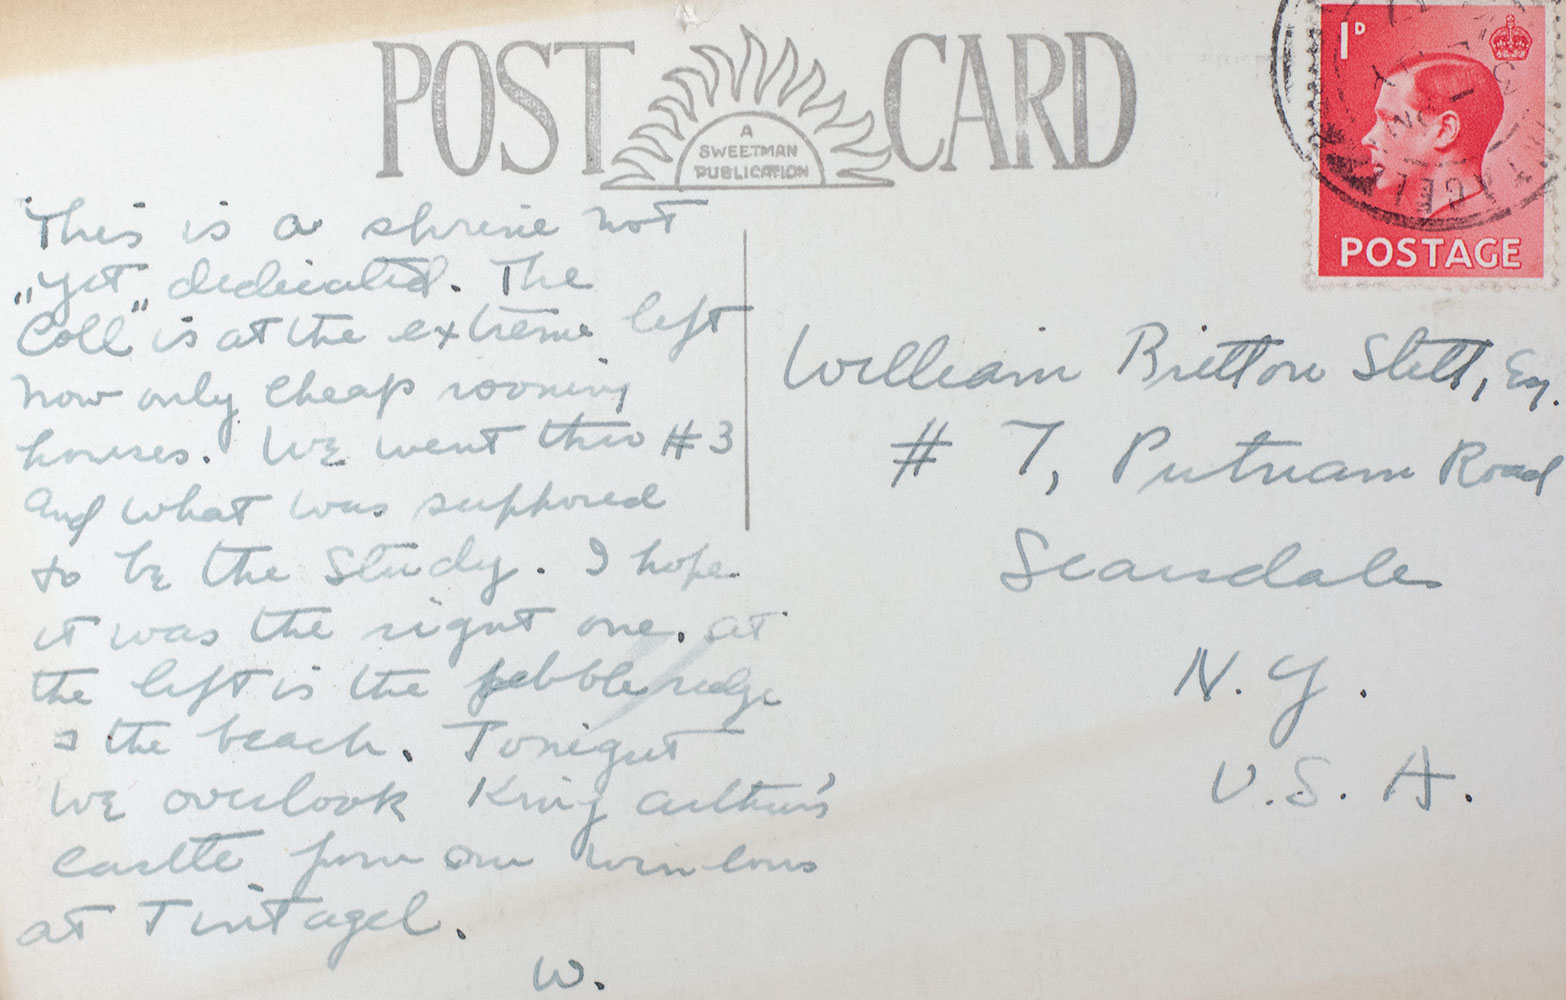 POST CARD
A
SWEETMAN
PUBLICATION
1D
POSTAGE
This is a shrine not
yet dedicated. The
"Coll" is at the extreme left
now only cheap rooming
houses. We went thro #3
and what was supposed
to be the Study. I hope
it was the right one. at
the left is the pebble ridge
& the beach. Tonight
we overlook King Arthur's
Castle from our windows
at Tintagel.
W.
William Britton Stitt, Esq.
# 7, Putnam Road
Scarsdale
N. Y.
U. S. A.